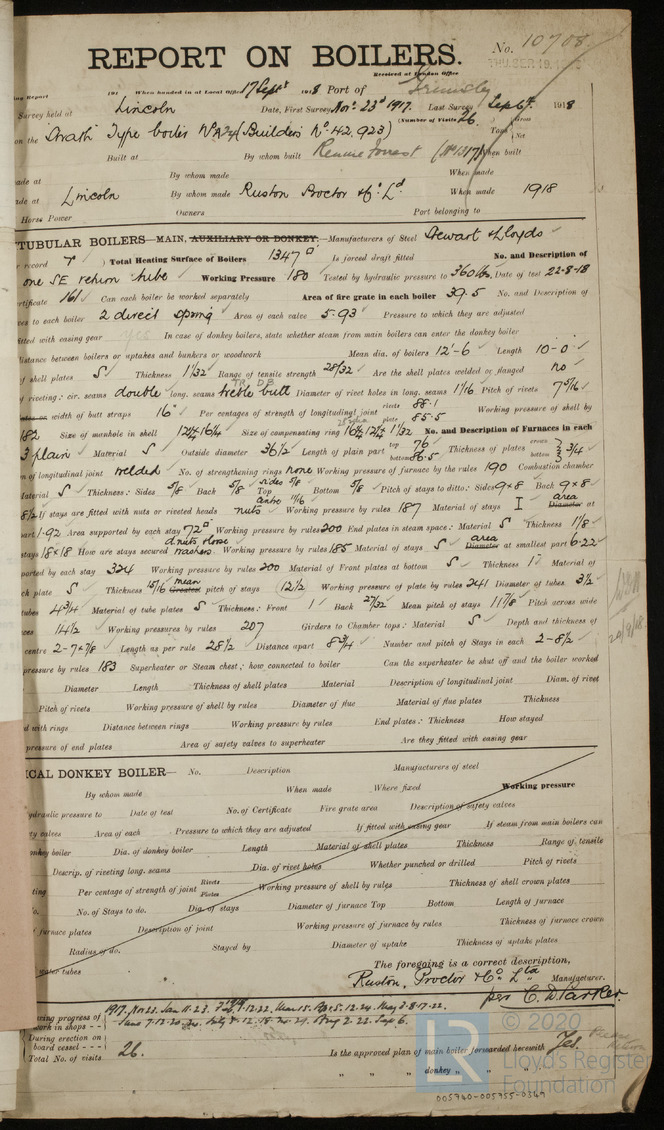 No. 10708
REPORT ON BOILERS.
THU. SEP. 19. 1918
Received at London Office
ing Report 191 When handed in at Local Office 17 Septr 1918 Port of Grimsby
Survey held at Lincoln Date, First Survey Novr 23rd 1917. Last Survey Sep 6th 1918
(Number of Visits 26) Gross
on the Strath Type boiler No A24 (Builders No 42,923) Tons Net
Built at By whom built Rennie Forrest (No 1317) When built
ade at By whom made When made
ade at Lincoln By whom made Ruston Proctor & Co Ld When made 1918
Horse Power Owners Port belonging to
TUBULAR BOILERS—MAIN, AUXILIARY OR DONKEY.—Manufacturers of Steel Stewart & Lloyds
r record Total Heating Surface of Boilers 1347 Is forced draft fitted No. and Description of
one SE return tube Working Pressure 180 Tested by hydraulic pressure to 360 lbs. Date of test 22-8-18
ertificate 161 Can each boiler be worked separately Area of fire grate in each boiler 39.5 No. and Description of
ves to each boiler 2 direct spring Area of each valve 5.93 Pressure to which they are adjusted
fitted with easing gear yes In case of donkey boilers, state whether steam from main boilers can enter the donkey boiler
distance between boilers or uptakes and bunkers or woodwork Mean dia. of boilers 12'-6 Length 10-0
f shell plates S Thickness 1 1/32 Range of tensile strength 28/32 Are the shell plates welded or flanged no
f riveting: cir. seams double long. seams TR. DB treble butt Diameter of rivet holes in long. seams 1 1/16 Pitch of rivets 7 9/16
width of butt straps 16 Per centages of strength of longitudinal joint rivets 88.1 plate 85.5 Working pressure of shell by
182 Size of manhole in shell 12 1/4 x 16 1/4 Size of compensating ring 1 1/32 No. and Description of Furnaces in each
3 plain Material S Outside diameter 36 1/2 Length of plain part top 76 bottom 86.5 Thickness of plates crown bottom 3/4
n of longitudinal joint welded No. of strengthening rings none Working pressure of furnace by the rules 190 Combustion chamber
aterial S Thickness: Sides 5/8 Back 5/8 Top 5/8 Bottom 5/8 Pitch of stays to ditto: Sides 9 x 8 Back 9 x 8
8 1/2 If stays are fitted with nuts or riveted heads nuts Working pressure by rules 187 Material of stays I area Diameter at
part 1.92 Area supported by each stay 72 Working pressure by rules 200 End plates in steam space: Material S Thickness 1 1/8
stays 18 x 18 How are stays secured d. nuts & loose washers Working pressure by rules 185 Material of stays S area Diameter at smallest part 6.22
ported by each stay 324 Working pressure by rules 200 Material of Front plates at bottom S Thickness 1 Material of
ck plate S Thickness 15/16 mean Greatest pitch of stays 12 1/2 Working pressure of plate by rules 241 Diameter of tubes 3 1/2
tubes 4 3/4 Material of tube plates S Thickness: Front 1 Back 27/32 Mean pitch of stays 11 7/8 Pitch across wide
ces 14 1/2 Working pressures by rules 207 Girders to Chamber tops: Material S Depth and thickness of
centre 2-7 x 7/8 Length as per rule 28 1/2 Distance apart 8 3/4 Number and pitch of Stays in each 2-8 1/2
pressure by rules 183 Superheater or Steam chest; how connected to boiler Can the superheater be shut off and the boiler worked
Diameter Length Thickness of shell plates Material Description of longitudinal joint Diam. of rivet
Pitch of rivets Working pressure of shell by rules Diameter of flue Material of flue plates Thickness
d with rings Distance between rings Working pressure by rules End plates: Thickness How stayed
pressure of end plates Area of safety valves to superheater Are they fitted with easing gear
ICAL DONKEY BOILER— No. Description Manufacturers of steel
By whom made When made Where fixed Working pressure
ydraulic pressure to Date of test No. of Certificate Fire grate area Description of safety valves
ty valves Area of each Pressure to which they are adjusted If fitted with easing gear If steam from main boilers can
onkey boiler Dia. of donkey boiler Length Material of shell plates Thickness Range of tensile
Descrip. of riveting long. seams Dia. of rivet holes Whether punched or drilled Pitch of rivets
ting Per centage of strength of joint Rivets Plates Working pressure of shell by rules Thickness of shell crown plates
o. No. of Stays to do. Dia. of stays Diameter of furnace Top Bottom Length of furnace
furnace plates Description of joint Working pressure of furnace by rules Thickness of furnace crown
Radius of do. Stayed by Diameter of uptake Thickness of uptake plates
water tubes
The foregoing is a correct description,
Ruston, Proctor & Co Ltd Manufacturer.
per C. D. Parker
During progress of work in shops 1917. Nov 23. Jan 11-23. Feb 4-12-22. Mar 15. Apr 5-12-24. May 3-8-17-22.
June 7-12-20. July 4-12. Aug 2-22. Sep 6.
During erection on board vessel
Total No. of visits 26.
Is the approved plan of main boiler forwarded herewith Yes.
" " " donkey " " "
© 2020
LR
Lloyd's Register
Foundation
005740-005755-0349